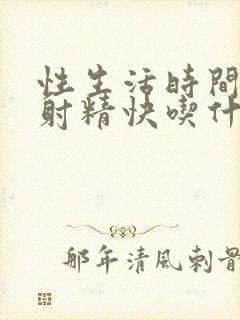 性生活時間
射精快喫什
那年清風刺骨